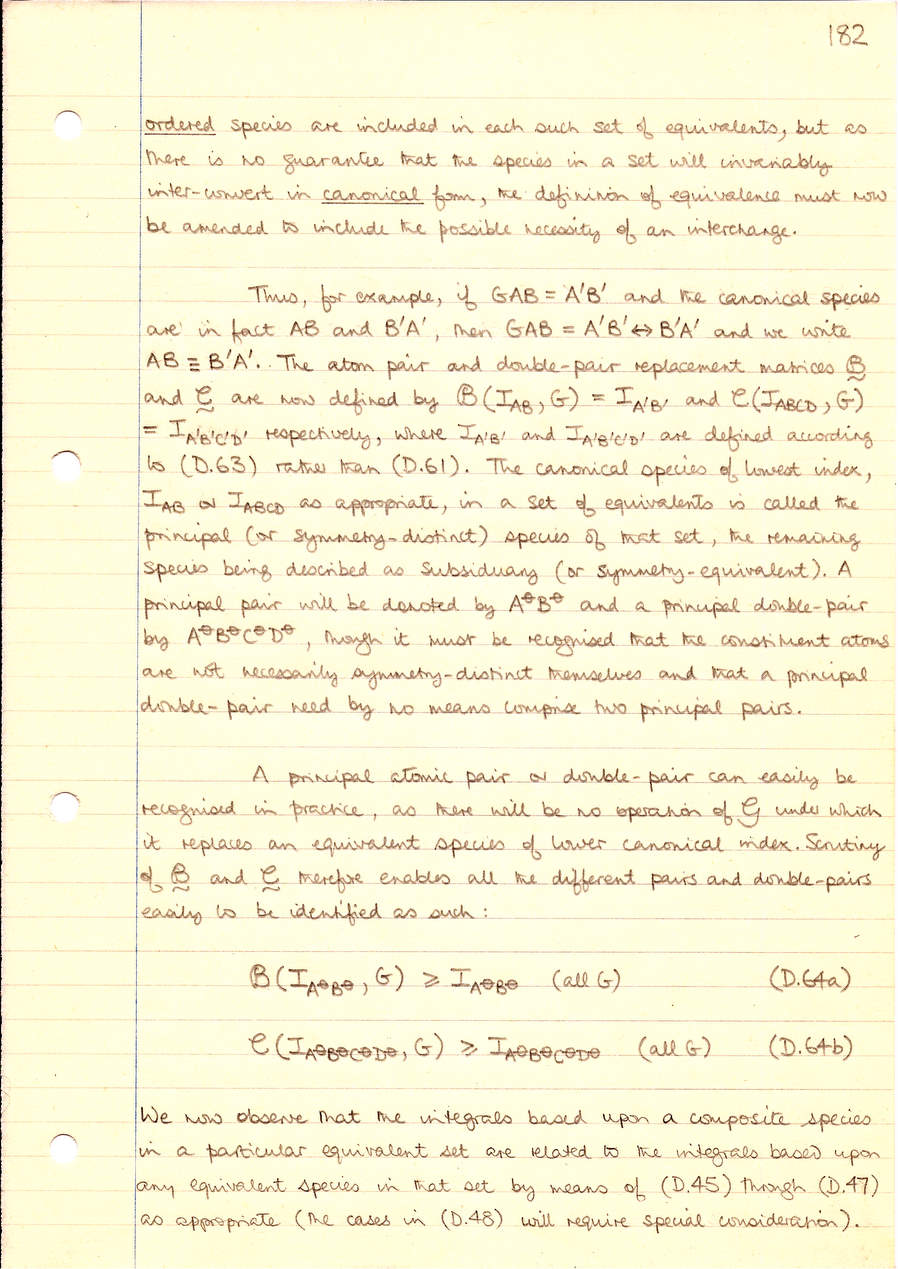 182
ordered species are included in each such set of equivalents, but as
there is no guarantee that the species in a set will invariably
inter-convert in canonical form, the definition of equivalence must now
be amended to include the possible necessity of an interchange.
Thus, for example, if GAB = A'B' and the canonical species
are in fact AB and B'A', then GAB = A'B' ↔ B'A' and we write
AB ≡ B'A'. The atom pair and double-pair replacement matrices ℬ
and 𝒞 are now defined by ℬ(I_AB, G) = I_A'B' and 𝒞(I_ABCD, G)
= I_A'B'C'D' respectively, where I_A'B' and I_A'B'C'D' are defined according
to (D.63) rather than (D.61). The canonical species of lowest index,
I_AB or I_ABCD as appropriate, in a set of equivalents is called the
principal (or symmetry-distinct) species of that set, the remaining
species being described as subsiduary (or symmetry-equivalent). A
principal pair will be denoted by A^⊖B^⊖ and a principal double-pair
by A^⊖B^⊖C^⊖D^⊖, though it must be recognised that the constituent atoms
are not necessarily symmetry-distinct themselves and that a principal
double-pair need by no means comprise two principal pairs.
A principal atomic pair or double-pair can easily be
recognised in practice, as there will be no operation of 𝒢 under which
it replaces an equivalent species of lower canonical index. Scrutiny
of ℬ and 𝒞 therefore enables all the different pairs and double-pairs
easily to be identified as such:
ℬ(I_A⊖B⊖, G) ⩾ I_A⊖B⊖ (all G) (D.64a)
𝒞(I_A⊖B⊖C⊖D⊖, G) ⩾ I_A⊖B⊖C⊖D⊖ (all G) (D.64b)
We now observe that the integrals based upon a composite species
in a particular equivalent set are related to the integrals based upon
any equivalent species in that set by means of (D.45) through (D.47)
as appropriate (the cases in (D.48) will require special consideration).